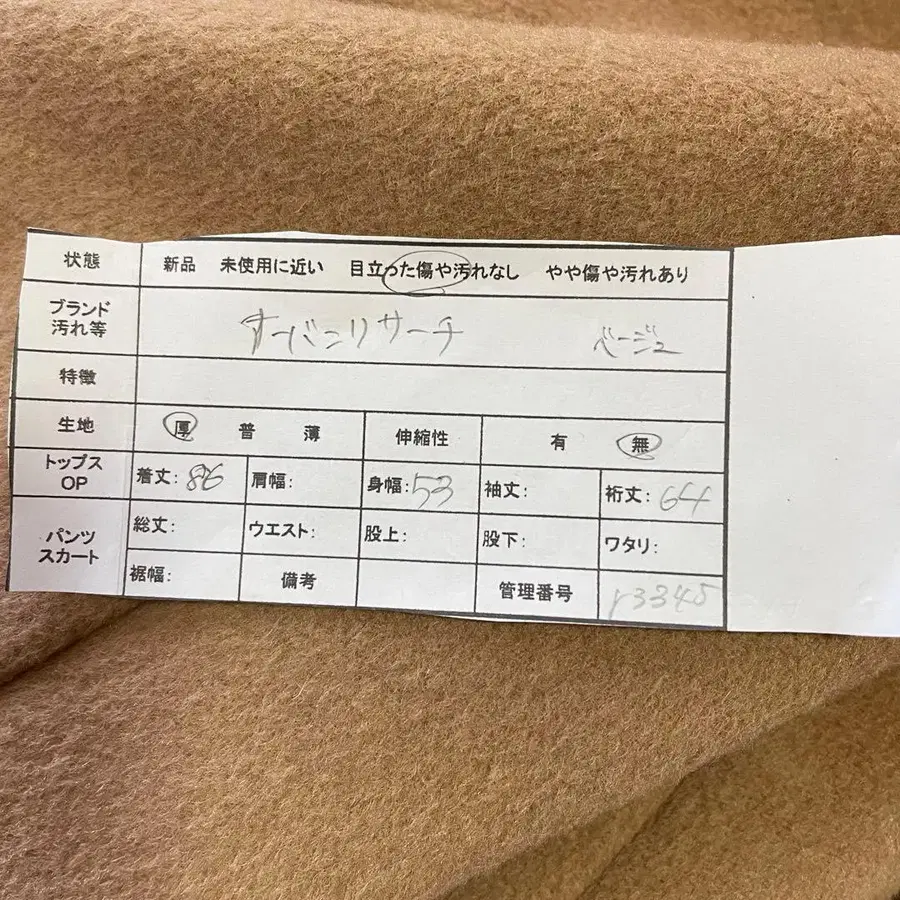 状態 新品 未使用に近い 目立った傷や汚れなし やや傷や汚れあり
ブランド
汚れ等 オーバンリサーチ ベージュ
特徴
生地 厚 普 薄 伸縮性 有 無
トップス
OP 着丈: 86 肩幅: 身幅: 53 袖丈: 裄丈: 64
パンツ
スカート 総丈: ウエスト: 股上: 股下: ワタリ:
裾幅: 備考 管理番号 r3345